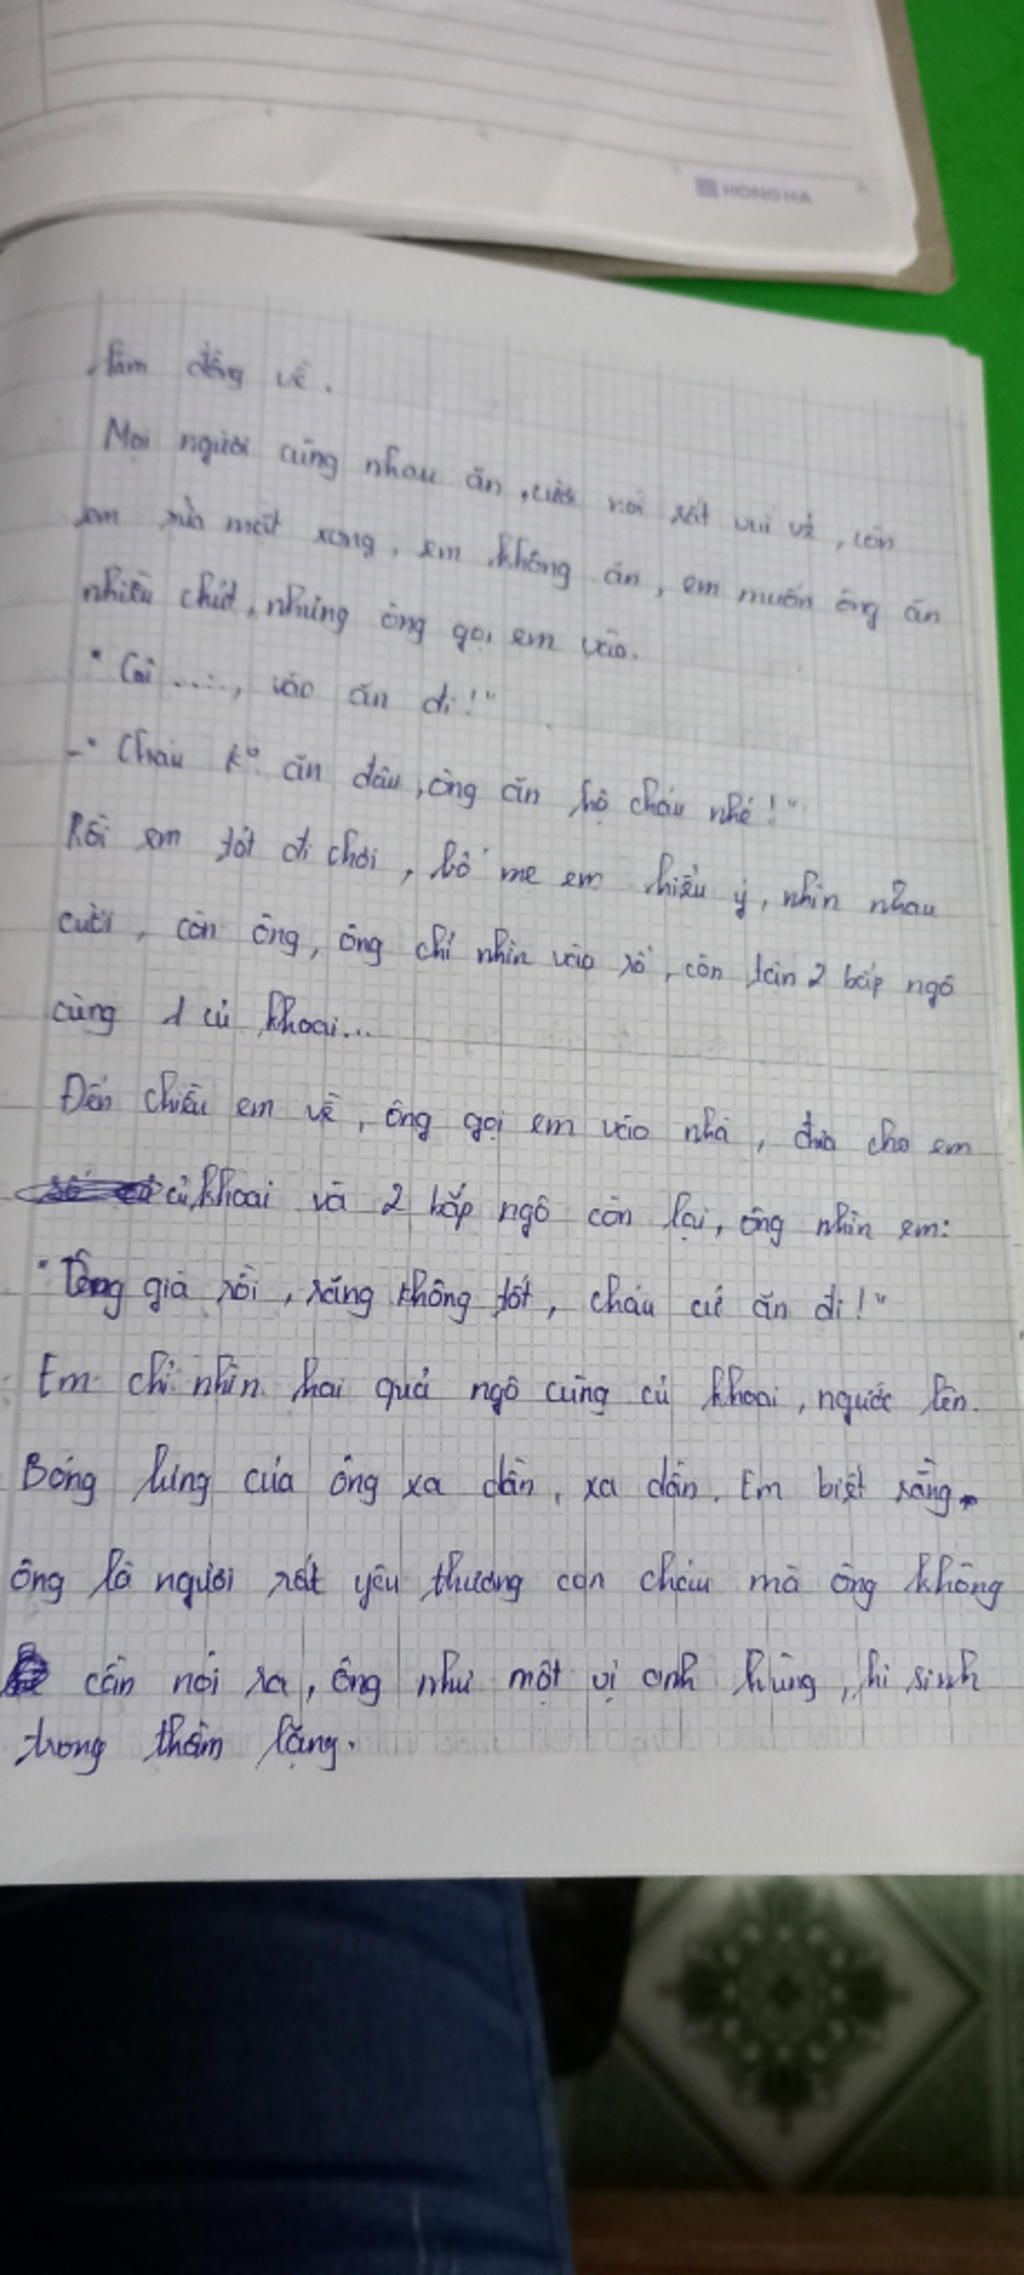 HONG HA
làm đồng về.
Mọi người cùng nhau ăn, cười nói rất vui vẻ, còn
em rửa mặt xong, em không ăn, em muốn ông ăn
nhiều chút, nhưng ông gọi em vào.
"Cái ....., vào ăn đi!"
-"Cháu k° ăn đâu, ông ăn hộ cháu nhé!"
Rồi em tót đi chơi, bố mẹ em hiểu ý, nhìn nhau
cười, còn ông, ông chỉ nhìn vào rổ, còn 2 bắp ngô
cùng 1 củ khoai...
Đến chiều em về, ông gọi em vào nhà, đưa cho em
củ khoai và 2 bắp ngô còn lại, ông nhìn em:
"Ông già rồi, răng không tốt, cháu cứ ăn đi!"
Em chỉ nhìn hai quả ngô cùng củ khoai, ngước lên.
Bóng lưng của ông xa dần, xa dần. Em biết rằng
ông là người rất yêu thương con cháu mà ông không
cần nói ra, ông như một vị anh hùng, hi sinh
trong thầm lặng.